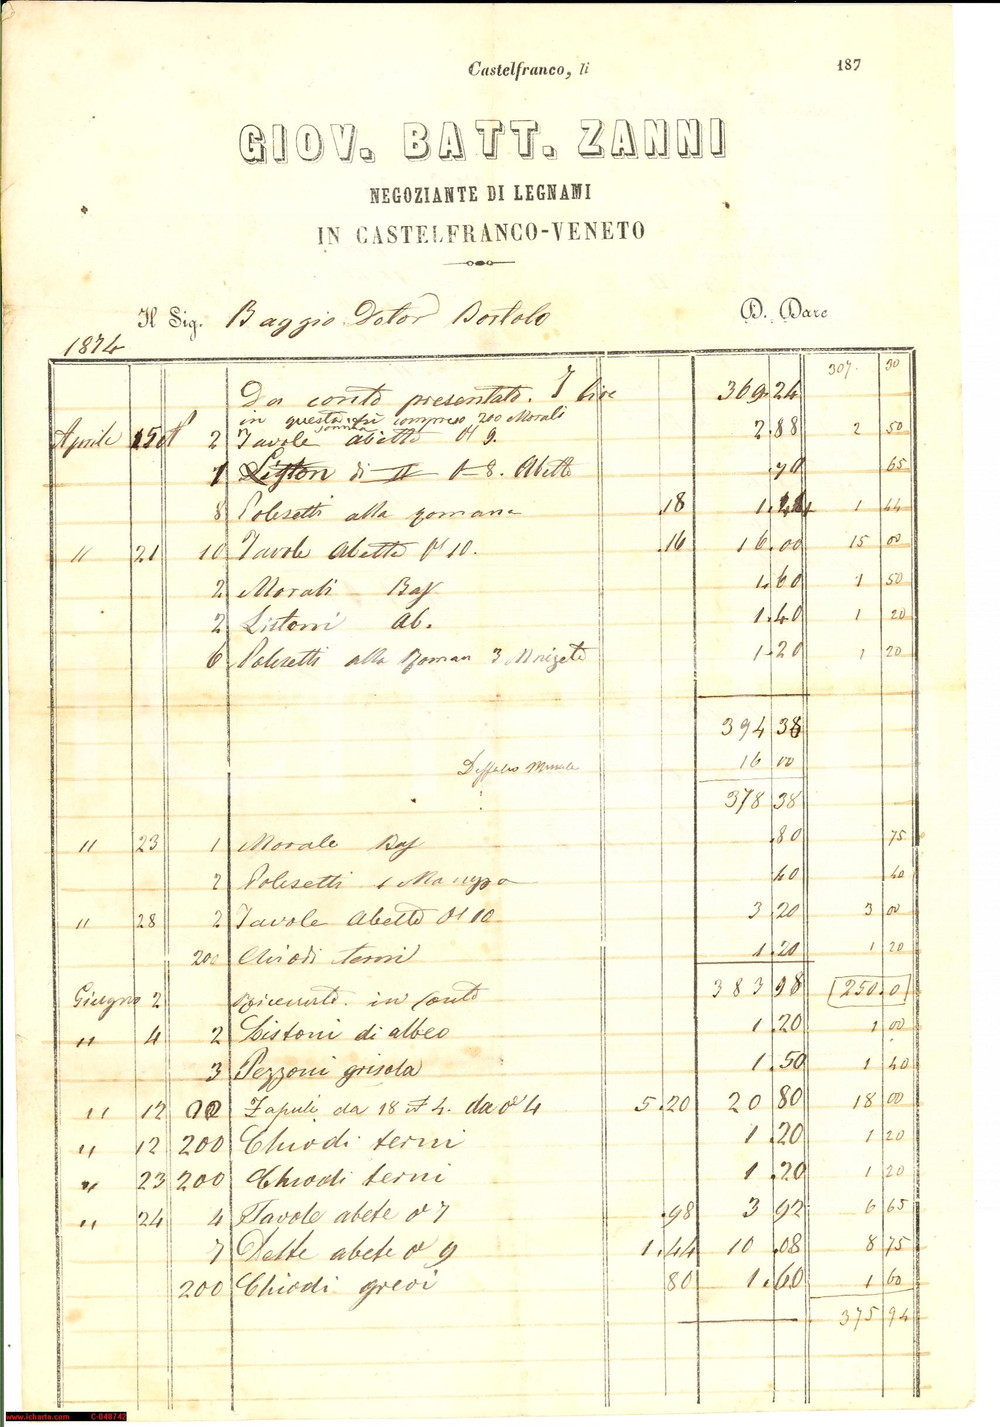 Castelfranco, li 187
GIOV. BATT. ZANNI
NEGOZIANTE DI LEGNAMI
IN CASTELFRANCO-VENETO
Il Sig. Baggio Dotor Bortolo D. Dare
1874
307. 30
Da conto presentato lire 369.24
in questa compreso 200 Morali
Aprile 15 2 Tavole abette 9. 2.88 2 50
1 di 8. Abette .70 65
8 Polesetti alla romana .18 1.44 1 44
" 21 10 Tavole Abette 10. .16 16.00 15 00
2 Morali 1.60 1 50
2 Listoni Ab. 1.40 1 20
6 Polesetti alla Roman 3 1.20 1 20
394 38
16 00
378 38
" 23 1 Morale .80 75
2 Polesetti .40 40
" 28 2 Tavole Abette 10 3 20 3 00
200 Chiodi terni 1.20 1 20
383 98
Giugno 2 in conto 250.0
" 4 2 Listoni di albeo 1.20 1 00
3 Pezzoni grisola 1.50 1 40
" 12 da 18 4. da 4 5.20 20 80 18 00
" 12 200 Chiodi terni 1.20 1 20
" 23 200 Chiodi terni 1.20 1 20
" 24 4 Tavole abete 7 .98 3 92 6 65
7 Dette abete 9 1.44 10.08 8 75
200 Chiodi grevi 80 1.60 1 60
375 94
www.icharta.com C-048742